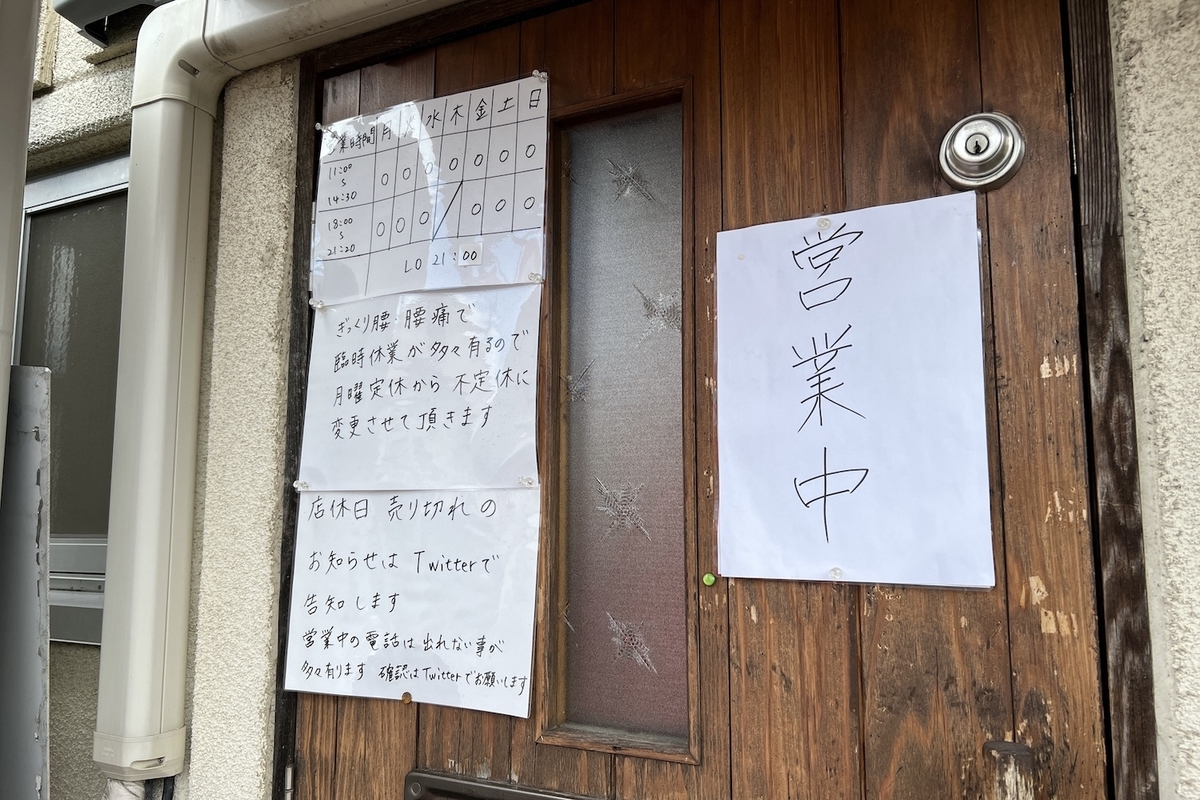 業時間 月 水 木 金 土 日
11:00
S
14:30
○ ○ ○ ○ ○ ○ ○
18:00
S
21:20
○ ○ ○ / ○ ○ ○
LO 21:00
ぎっくり腰・腰痛で
臨時休業が多々有るので
月曜定休から不定休に
変更させて頂きます
店休日 売り切れの
お知らせは Twitterで
告知します
営業中の電話は出れない事が
多々有ります 確認はTwitterでお願いします
営業中